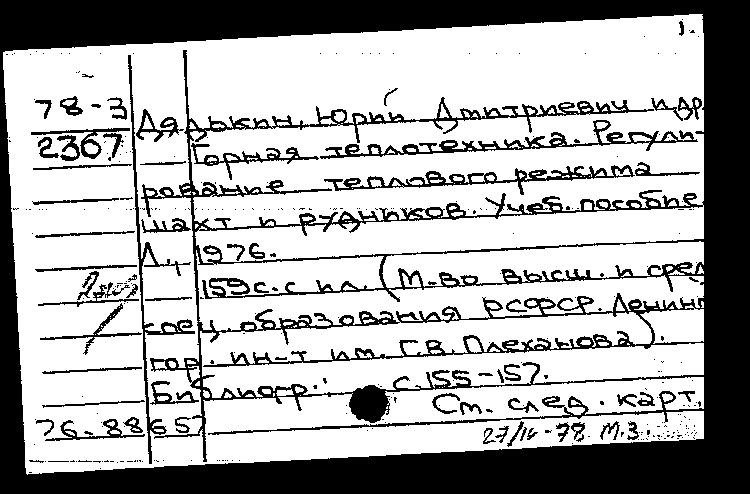 1.
78-3
2367
Дядькин, Юрий Дмитриевич и др.
Горная теплотехника. Регули-
рование теплового режима
шахт и рудников. Учеб. пособие
Л., 1976.
159с. с ил. (М-во высш. и сред
спец. образования РСФСР. Ленинг
гор. ин-т им. Г.В. Плеханова).
Библиогр.: с. 155-157.
См. след. карт.
76-88657
27/IV-78 М.З.